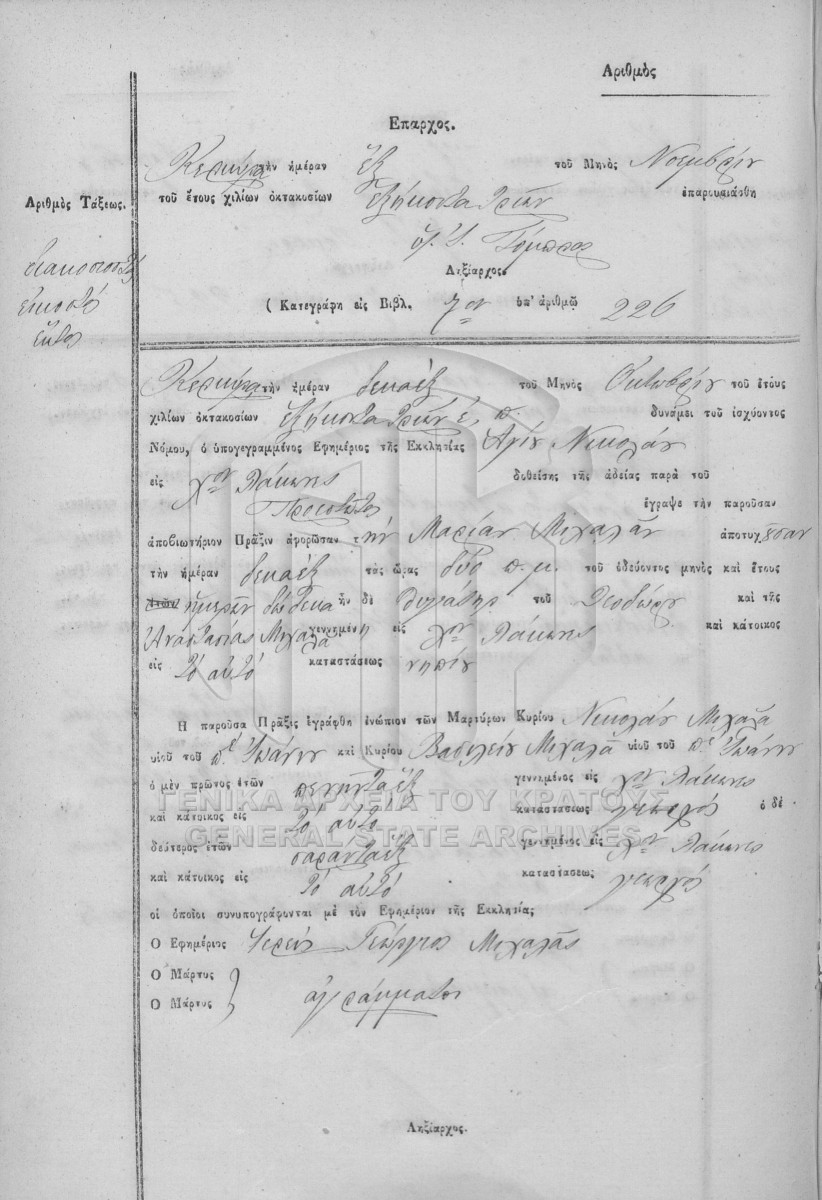 Αριθμὸς
Επαρχος.
Κερκύρᾳ τὴν ἡμέραν ἓξ τοῦ Μηνὸς Νοεμβρίου
τοῦ ἔτους χιλίων ὀκτακοσίων ἑξήκοντα τριῶν ἐπαρουσιάσθη
Αριθμὸς Τάξεως.
διακοσιοστὸ
εἰκοστὸ
ἕκτος
Ληξίαρχος.
( Κατεγράφη εἰς Βιβλ. 7ον ὑπ' ἀριθμῷ 226
Κερκύρᾳ τὴν ἡμέραν δεκαὲξ τοῦ Μηνὸς Οκτωβρίου τοῦ ἔτους
χιλίων ὀκτακοσίων ἑξήκοντα τριῶν ἐ. π. δυνάμει τοῦ ἰσχύοντος
Νόμου, ὁ ὑπογεγραμμένος Εφημέριος τῆς Εκκλητίας Αγίου Νικολάου
εἰς χον Λάκωνες δοθείσης τῆς ἀδείας παρὰ τοῦ
ἔγραψε τὴν παροῦσαν
ἀποβιωτήριον Πρᾶξιν ἀφορῶσαν τὴν Μαρίαν Μιχαλᾶν ἀποτυχοῦσαν
τὴν ἡμέραν δεκαὲξ τὰς ὥρας δύο π.μ. τοῦ ὁδεύοντος μηνὸς καὶ ἔτους
ἐτῶν ἡμερῶν δώδεκα ἦν δὲ θυγάτηρ τοῦ Θεοδώρου καὶ τῆς
Αναστασίας Μιχαλᾶ γεννημένη εἰς χον Λάκωνες καὶ κάτοικος
εἰς τὸ αὐτὸ καταστάσεως νηπίου
Η παροῦσα Πρᾶξις ἐγράφθη ἐνώπιον τῶν Μαρτύρων Κυρίου Νικολάου Μιχαλᾶ
υἱοῦ τοῦ πὲ Ιωάννου καὶ Κυρίου Βασιλείου Μιχαλᾶ υἱοῦ τοῦ πὲ Ιωάννου
ὁ μὲν πρῶτος ἐτῶν πενῆντα ἓξ γεννημένος εἰς χον Λάκωνες
καὶ κάτοικος εἰς τὸ αὐτὸ καταστάσεως γεωργὸς ὁ δὲ
ΓΕΝΙΚΑ ΑΡΧΕΙΑ ΤΟΥ ΚΡΑΤΟΥΣ
GENERAL STATE ARCHIVES
δεύτερος ἐτῶν σαρανταὲξ γεννημένος εἰς χον Λάκωνες
καὶ κάτοικος εἰς τὸ αὐτὸ καταστάσεως γεωργός
οἱ ὁποῖοι συνυπογράφονται μὲ τὸν Εφημέριον τῆς Εκκλητίας
Ο Εφημέριος Ιερεὺς Γεώργιος Μιχαλᾶς
Ο Μάρτυς
Ο Μάρτυς } ἀγράμματοι
Ληξίαρχος.